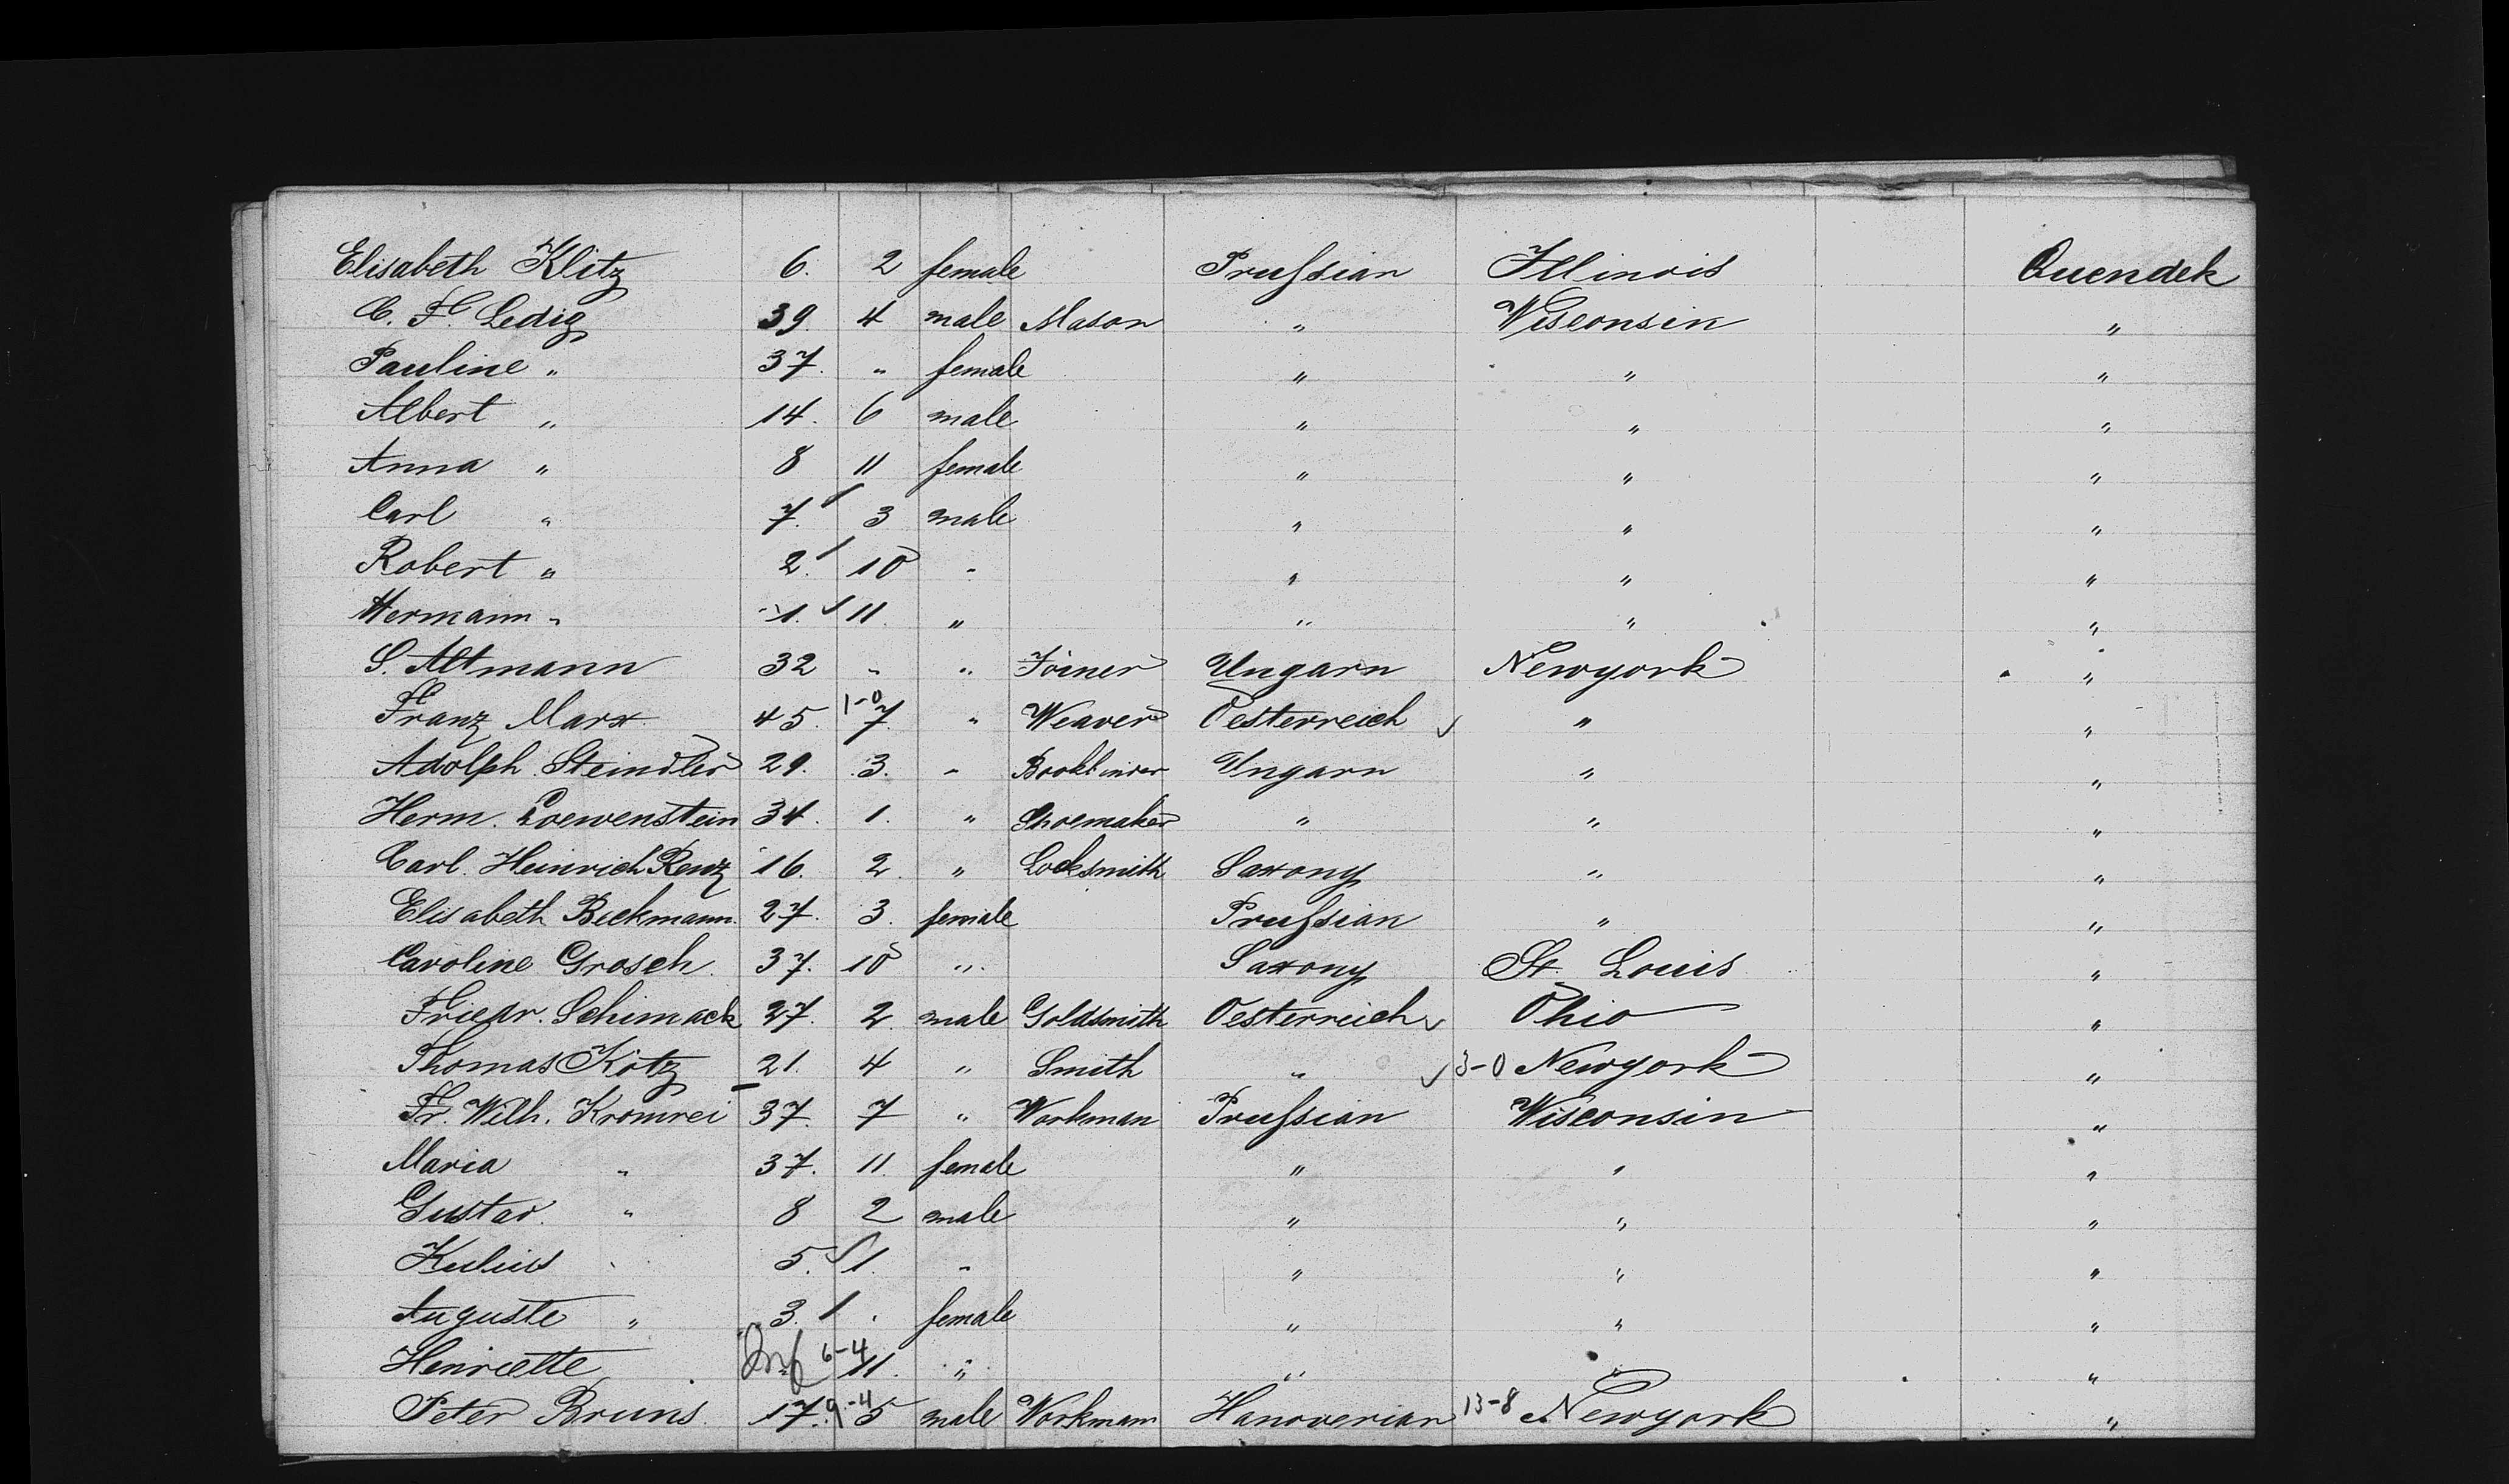 Elisabeth Klitz 6. 2 female Prussian Illinois Quendek
C. F. Ledig 39. 4 male Mason " Wisconsin "
Pauline " 37. " female " " "
Albert " 14. 6 male " " "
Anna " 8 11 female " " "
Carl " 7. 3 male " " "
Robert " 2. 10 " " " "
Hermann " 1. 11. " " " "
S. Altmann 32 " " Joiner Ungarn Newyork "
Franz Marx 45. 1-0 7. " Weaver Oesterreich ✓ " "
Adolph Steindler 29. 3. " Bookbinder Ungarn " "
Herm. Loewenstein 34. 1. " Shoemaker " " "
Carl. Heinrich Renz 16. 2. " Locksmith Saxony " "
Elisabeth Beckmann. 27. 3. female Prussian " "
Caroline Grosch. 37. 10 " Saxony St. Louis "
Friedr. Schimack 27. 2. male Goldsmith Oesterreich ✓ Ohio "
Thomas Kotz 21. 4 " Smith " ✓ 3-0 Newyork "
Fr. Wilh. Kromrei 37. 7 " Workman Prussian Wisconsin "
Maria " 37. 11. female " " "
Gustav. " 8 2 male " " "
Julius " 5. ✓ 1. " " " "
Auguste " 3. " female " " "
Henriette Inf 6-4 11. " " " "
Peter Bruns. 17. 9-4 5 male Workman Hanoverian 13-8 Newyork "